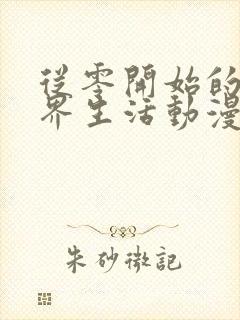 從零開始的
界生活動漫
朱砂微記